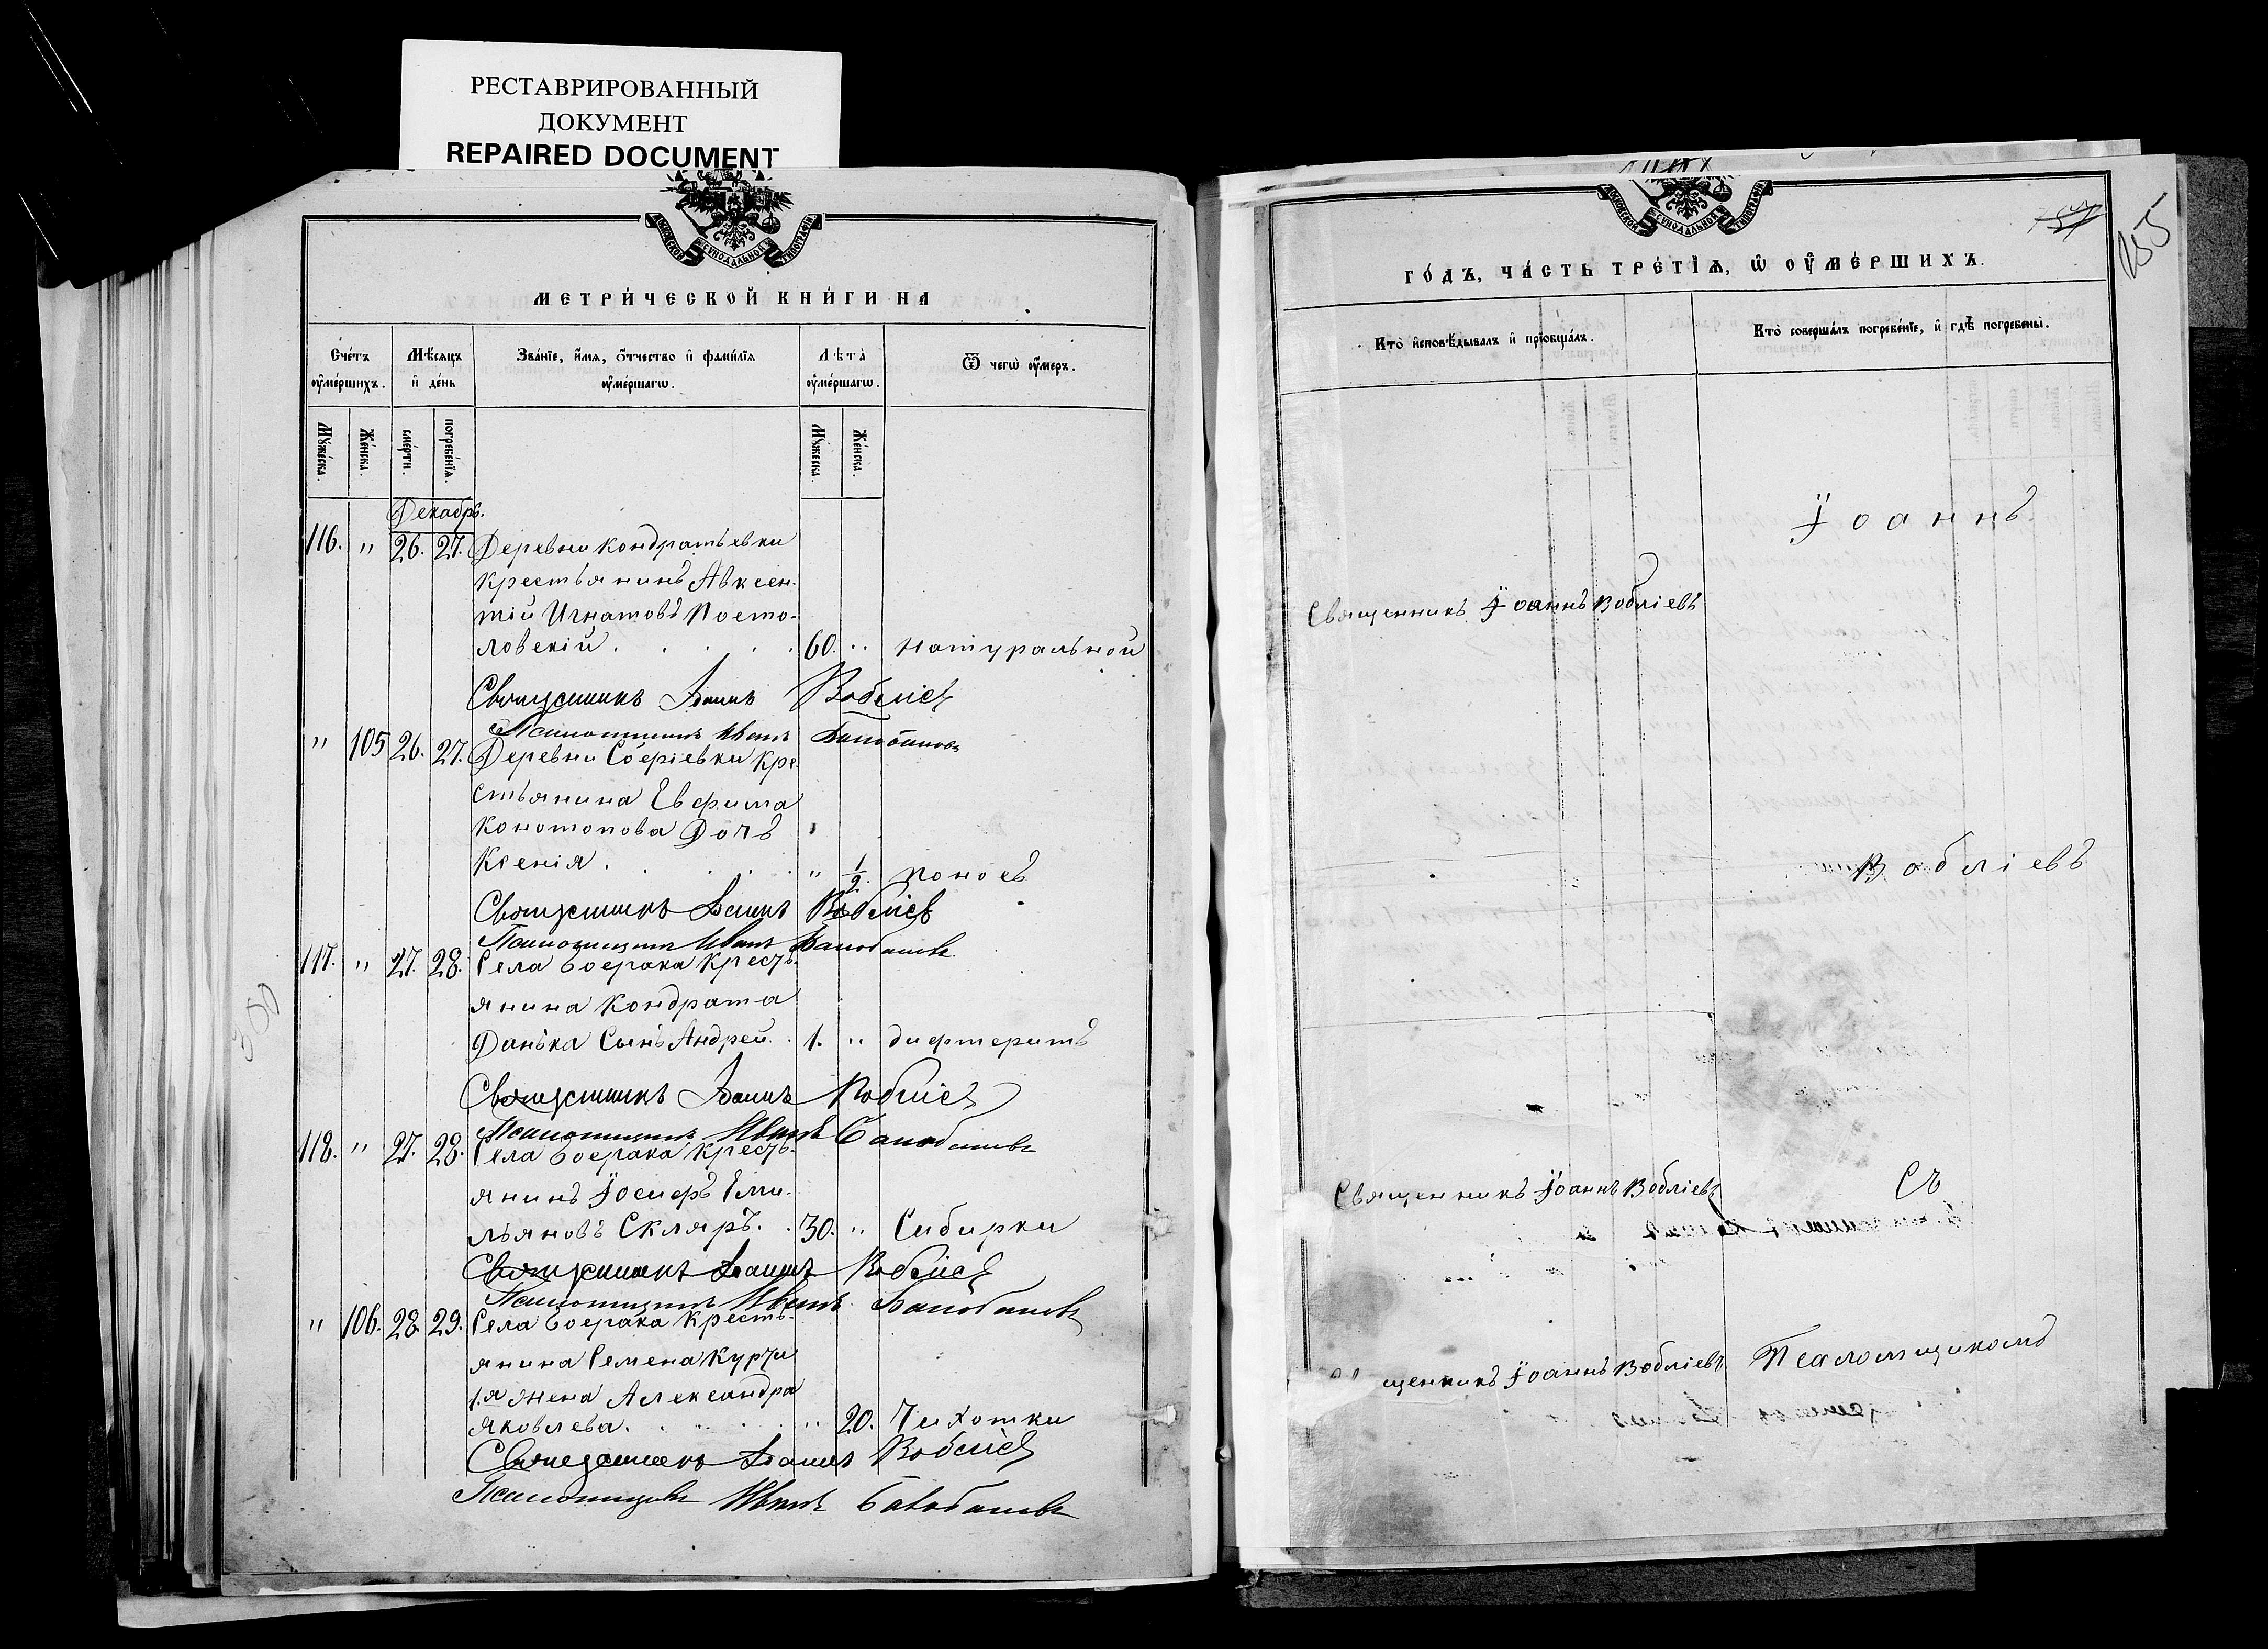 РЕСТАВРИРОВАННЫЙ
ДОКУМЕНТ
REPAIRED DOCUMENT
МОСКОВСКОЙ СѴНОДАЛЬНОЙ ТИПОГРАФІИ
МЕТРИ́ЧЕСКОЙ КНИ́ГИ НА
Сче́тъ ᲂу҆ме́ршихъ.
Мѣ́сяцъ и҆ де́нь
Зва́нїе, и҆́мя, ѻ҆́тчество и҆ фами́лїя ᲂу҆ме́ршагѡ.
Лѣ́та ᲂу҆ме́ршагѡ.
Ѿ чегѡ̀ ᲂу҆́меръ.
Мꙋ́жеска.
Же́нска.
сме́рти.
погребе́нїя.
Мꙋ́жеска.
Же́нска.
Декабрь.
116. " 26. 27. Деревни Кондратьевки
Крестьянинъ Авксен-
тій Игнатовъ Посто-
ловскій . 60. " натуральной
Священникъ Іоаннъ Вобліевъ
Псаломщикъ Иванъ Балабановъ
" 105 26. 27. Деревни Софіевки Кре
стьянина Евфима
Конотопова Дочь
Ксенія . " 1/2. поносъ
Священникъ Іоаннъ Вобліевъ
Псаломщикъ Иванъ Балабановъ
117. " 27. 28. Села Боерака Кресть-
янина Кондрата
Данька Сынъ Андрей . 1. " дифтеритъ
Священникъ Іоаннъ Вобліевъ
Псаломщикъ Иванъ Балабановъ
118. " 27. 28. Села Боерака Кресть-
янинъ Іосифъ Еми-
льяновъ Скляръ. 30. " Сибирки
Священникъ Іоаннъ Вобліевъ
Псаломщикъ Иванъ Балабановъ
" 106. 28. 29. Села Боерака Кресть-
янина Семена Курчи
1.я жена Александра
Яковлева . " 20. Чихотки
Священникъ Іоаннъ Вобліевъ
Псаломщикъ Иванъ Балабановъ
300
МОСКОВСКОЙ СѴНОДАЛЬНОЙ ТИПОГРАФІИ
155
ГО́ДЪ, ЧА́СТЬ ТРЕ́ТІѦ, Ѡ҆ ОУ҆МЕ́РШИХЪ.
Кто̀ и҆сповѣ́дывалъ и҆ прїобща́лъ.
Кто̀ соверша́лъ погребе́нїе, и҆ гдѣ̀ погребены̀.
Іоаннъ
Священникъ Іоаннъ Вобліевъ
Вобліевъ
Священникъ Іоаннъ Вобліевъ
Съ
щенникъ Іоаннъ Вобліевъ
Псаломщикомъ